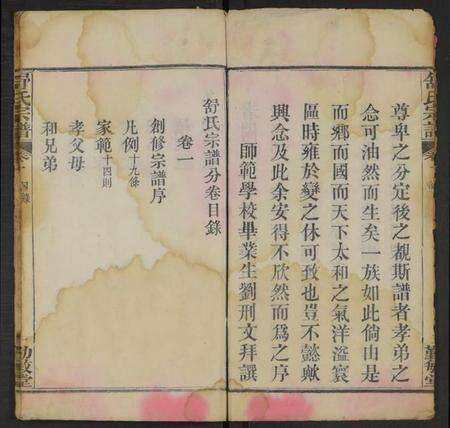 尊卑之分定後之覩斯譜者孝弟之
念可油然而生矣一族如此倘由是
而鄉而國而天下太和之氣洋溢寰
區時雍於變之休可孜也豈不懿歟
興念及此余安得不欣然而為之序
師範學校畢業生劉刑文拜譔
舒氏宗譜分卷目錄
卷一
創修宗譜序
凡例十九條
家範十四則
孝父母
和兄弟
舒氏宗譜
舒氏宗譜
目錄
勤敏堂